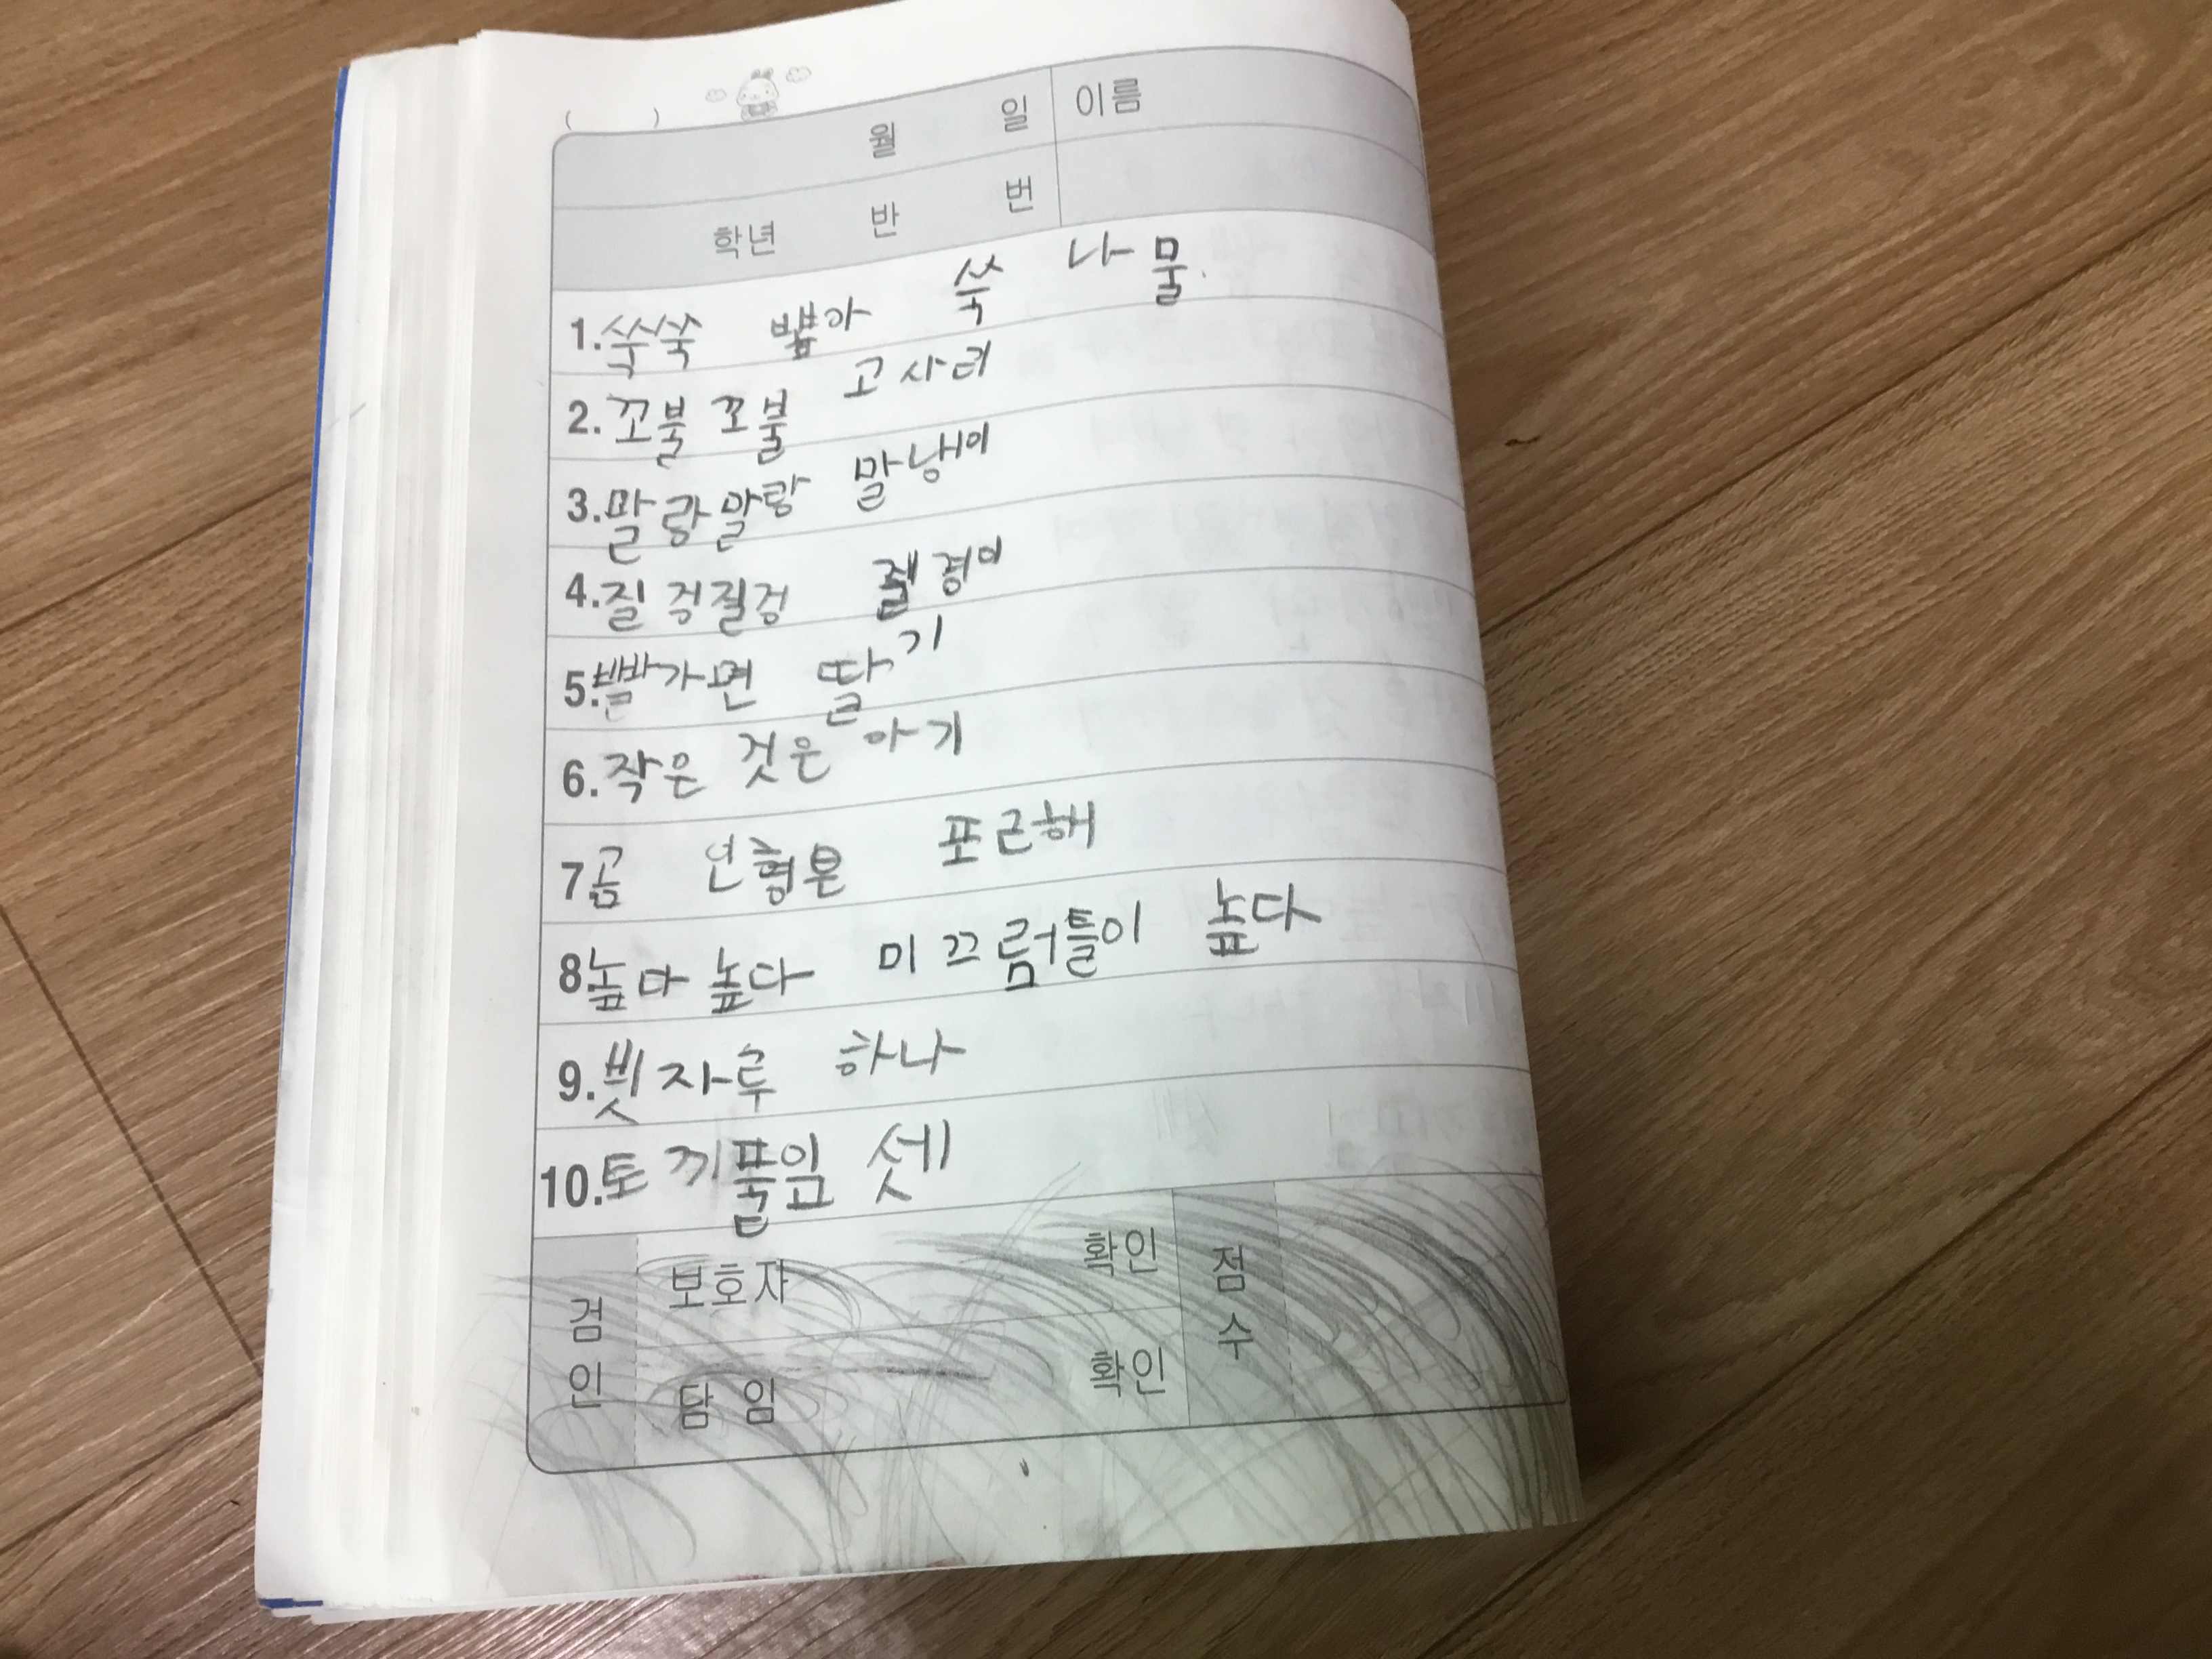 ( )
월 일 이름
학년 반 번
1. 쑥쑥 뽑아 쑥 나물
2. 꼬불 꼬불 고사리
3. 말랑말랑 말냉이
4. 질겅질겅 질경이
5. 빨가면 딸기
6. 작은 것은 아기
7. 곰 인형은 포근해
8. 높다 높다 미끄럼틀이 높다
9. 빗자루 하나
10. 토끼풀잎 셋
검인 보호자 확인 점수
담임 확인